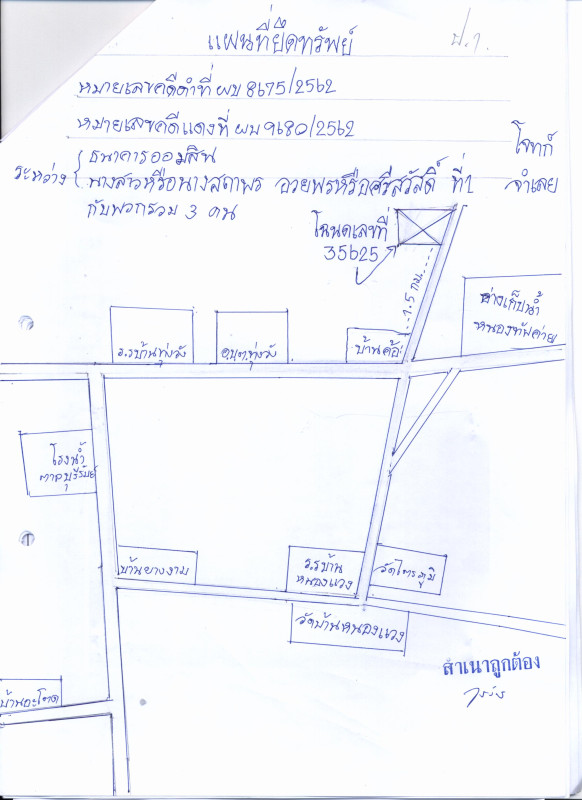 แผนที่ยึดทรัพย์
ป.1.
หมายเลขคดีดำที่ ผบ 8675/2562
หมายเลขคดีแดงที่ ผบ 9680/2562
ระหว่าง { ธนาคารออมสิน โจทก์
นางสาวหรือนางสถาพร อวยพรหรือศรีสวัสดิ์ ที่1 จำเลย
กับพวกรวม 3 คน
โฉนดเลขที่
35625
1.5 กม.
อ่างเก็บน้ำ
หนองทัพค่าย
ร.รบ้านทุ่งวัง
อบต.ทุ่งวัง
บ้านค้อ
โรงน้ำ
ตาลบุรีรัมย์
บ้านยางงาม
ร.รบ้าน
หนองแวง
วัดไตรภูมิ
วัดบ้านหนองแวง
สำเนาถูกต้อง